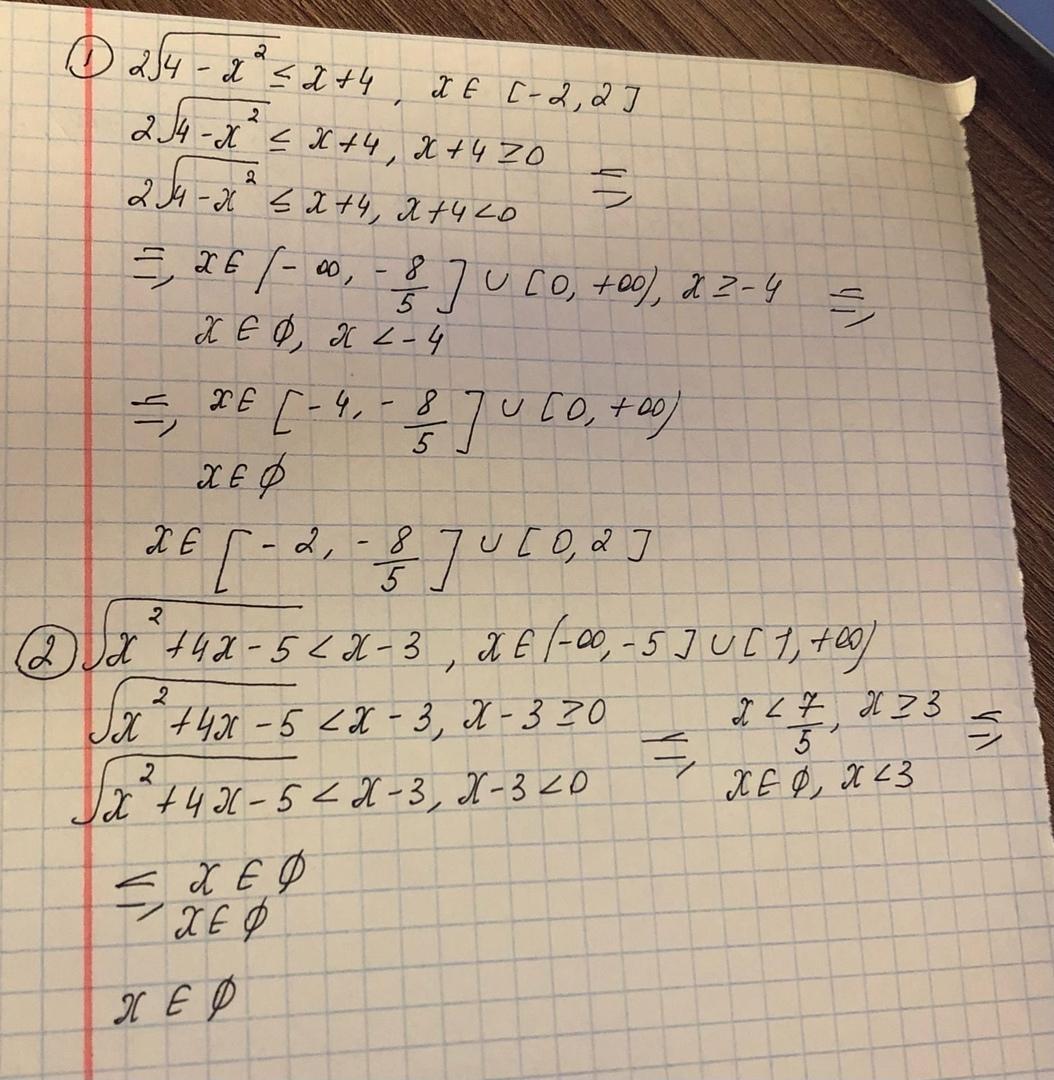 ① 2√(4 - x²) ≤ x+4, x ∈ [-2, 2]
2√(4-x²) ≤ x+4, x+4 ≥ 0 =>
2√(4-x²) ≤ x+4, x+4 < 0
=> x ∈ (-∞, -8/5] ∪ [0, +∞), x ≥ -4 =>
x ∈ ∅, x < -4
=> x ∈ [-4, -8/5] ∪ [0, +∞)
x ∈ ∅
x ∈ [-2, -8/5] ∪ [0, 2]
② √(x²+4x-5) < x-3, x ∈ (-∞, -5] ∪ [1, +∞)
√(x²+4x-5) < x-3, x-3 ≥ 0 => x < 7/5, x ≥ 3 =>
√(x²+4x-5) < x-3, x-3 < 0 x ∈ ∅, x < 3
=> x ∈ ∅
x ∈ ∅
x ∈ ∅